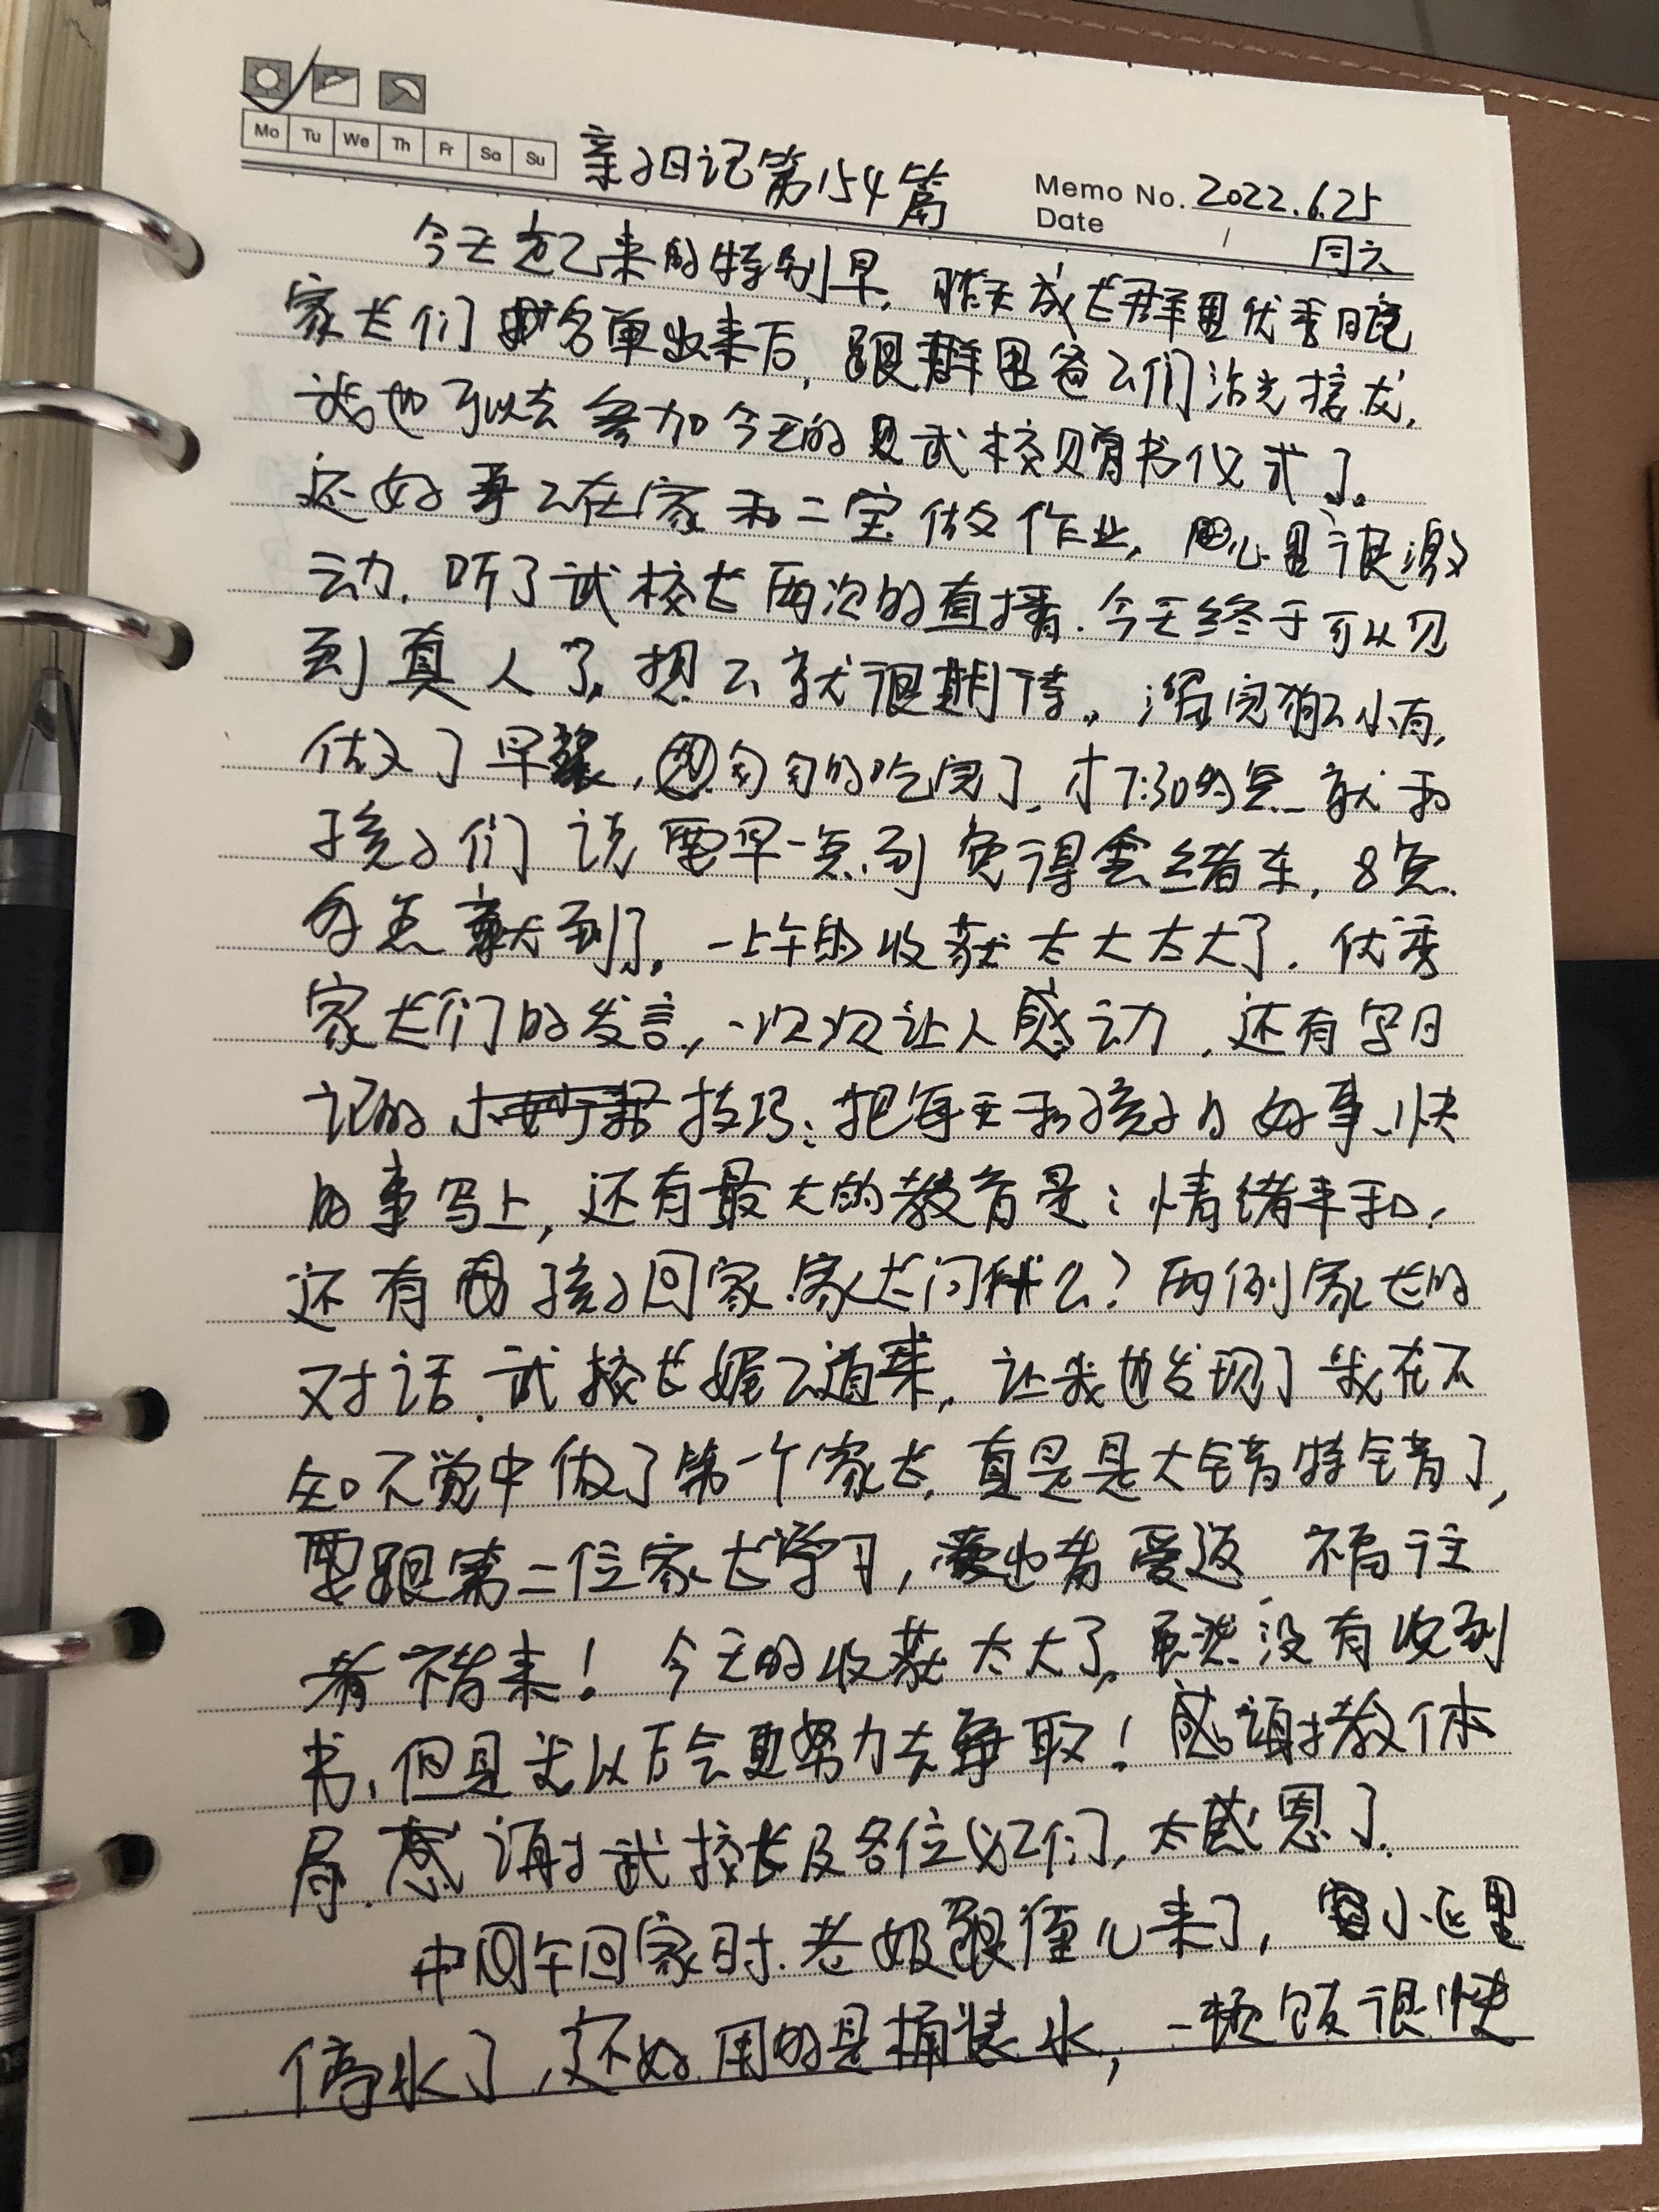 Mo Tu We Th Fr Sa Su
亲子日记第154篇
Memo No. 2022.6.25
Date / 周六
今天起来的特别早,昨天成长群里优秀
家长们名单出来后,跟群里爸爸们沾光接龙,
我也可以去参加今天的武校赠书仪式了。
还好哥哥在家和二宝做作业,心里很激
动,听了武校长两次的直播.今天终于可以见
到真人了,想想就很期待。遛完狗小雨,
做了早餐,匆匆的吃完了,才7:30的点就和
孩子们说要早一点到免得会堵车,8点
多点就到了。一上午的收获太大太大了.优秀
家长们的发言,一次次让人感动,还有写日
记的小技巧:把每天和孩子的好事、快
的事写上,还有最大的教育是:情绪平和,
还有孩子回家.家长问什么?两例家长的
对话.武校长娓娓道来,让我也发现了我在不
知不觉中做了第一个家长,真是是大错特错了,
要跟第二位家长学习,爱出者爱返,福往
者福来!今天的收获太大了,虽然没有收到
书,但是我以后会更努力去争取!感谢教体
局.感谢武校长及各位们,太感恩了.
中午回家时.老奶跟侄儿来了,小区里
停水了,还好用的是桶装水,一顿饭很快